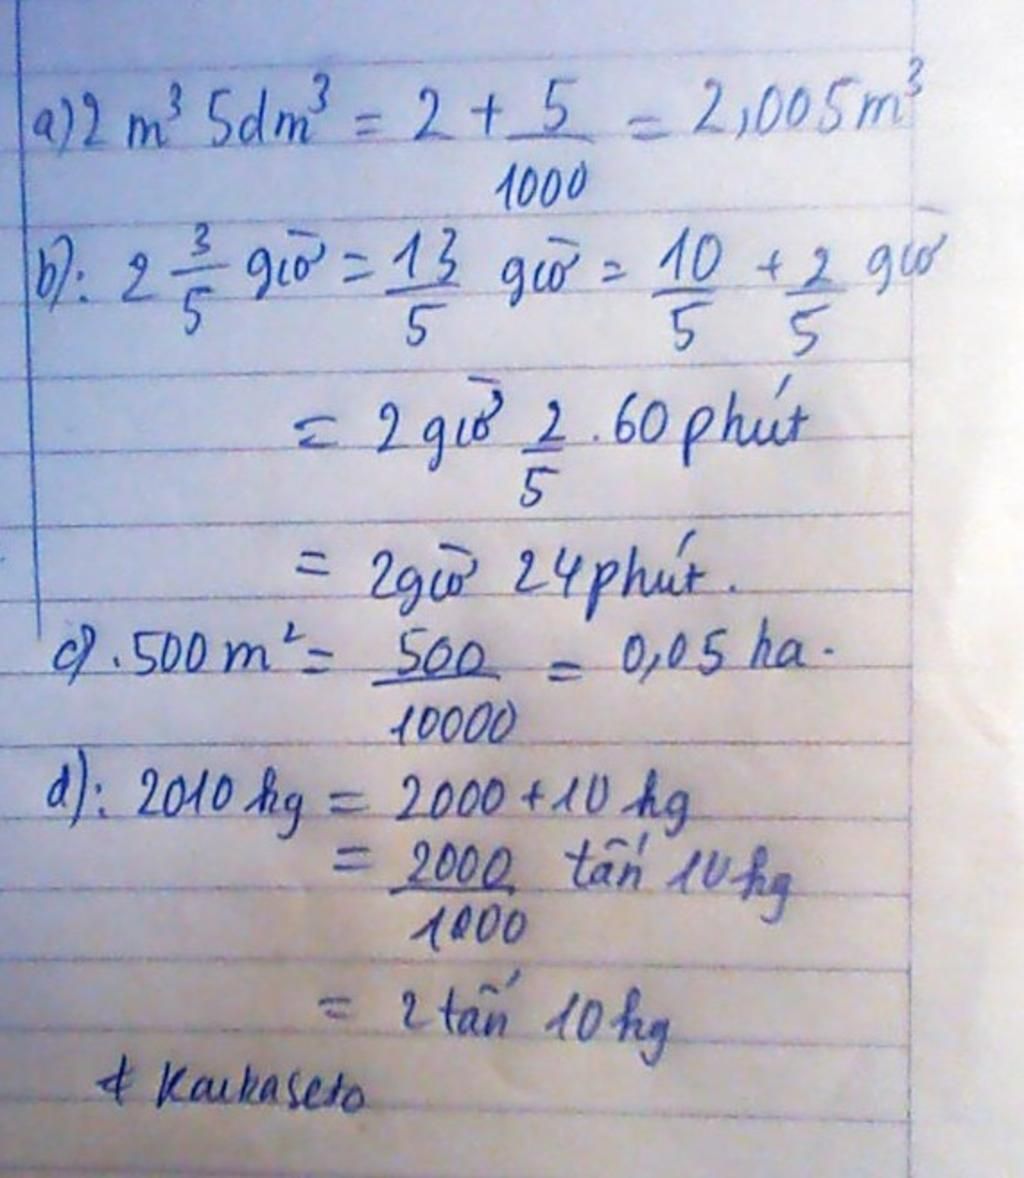 a) 2 m³ 5dm³ = 2 + 5/1000 = 2,005m³
b): 2 3/5 giờ = 13/5 giờ = 10/5 + 2/5 giờ
= 2 giờ 2/5 . 60 phút
= 2 giờ 24 phút.
c). 500 m² = 500/10000 = 0,05 ha.
d): 2010 kg = 2000 + 10 kg
= 2000/1000 tấn 10 kg
= 2 tấn 10 kg